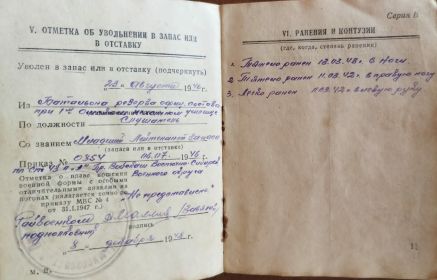 V. ОТМЕТКА ОБ УВОЛЬНЕНИИ В ЗАПАС ИЛИ
В ОТСТАВКУ
Уволен в запас или в отставку (подчеркнуть)
23 августа 1946 г.
Из Батальона резерва офиц. состава
при 1-м
училище
По должности Слушатель
Со званием Младший Лейтенант запаса
(запаса или в отставке)
Приказ № 0354 06.07. 1946 г.
по Ст 43 п. "А"
Отметка о праве ношения
военной формы с особыми
отличительными знаками на
погонах (имеется
приказу МВС № 4
от 31.1.1947 г.)
Военного округа
"Не представлен"
Гайвоенком
подполковник
подпись
8 декабря 194
М. П.
Серия В
VI. РАНЕНИЯ И КОНТУЗИИ
(где, когда, степень ранения)
1. Тяжело ранен 13.03.42. в ноги.
2. Тяжело ранен 11.03.42. в правую ногу
3. Легко ранен 11.09.42. в левую руку.